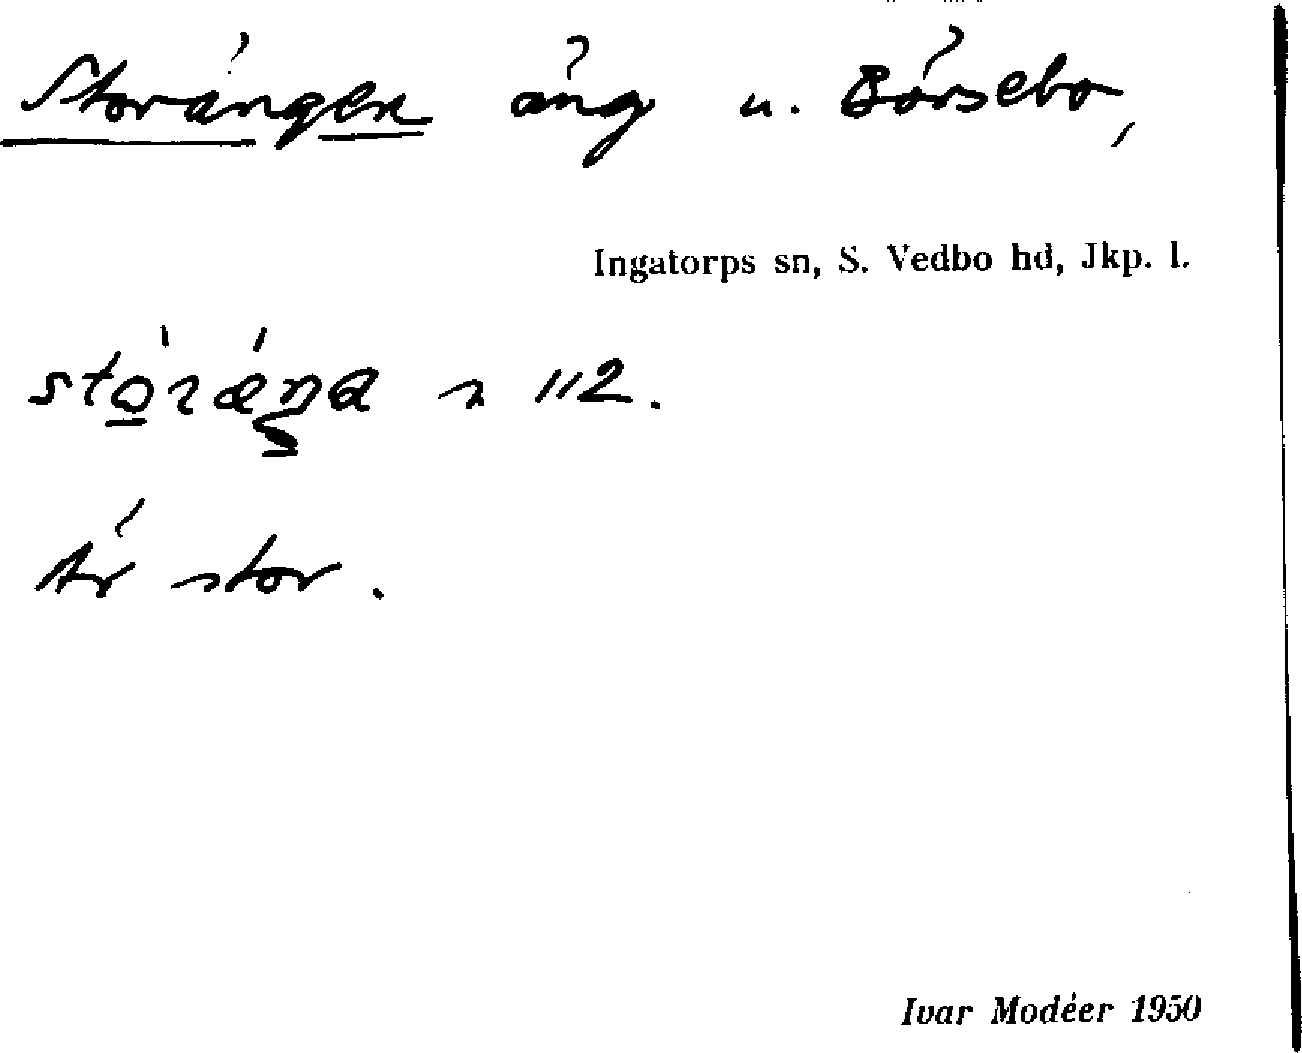 Storängen äng u. Börsebo,
Ingatorps sn, S. Vedbo hd, Jkp. l.
112.
Är stor.
Ivar Modéer 1950